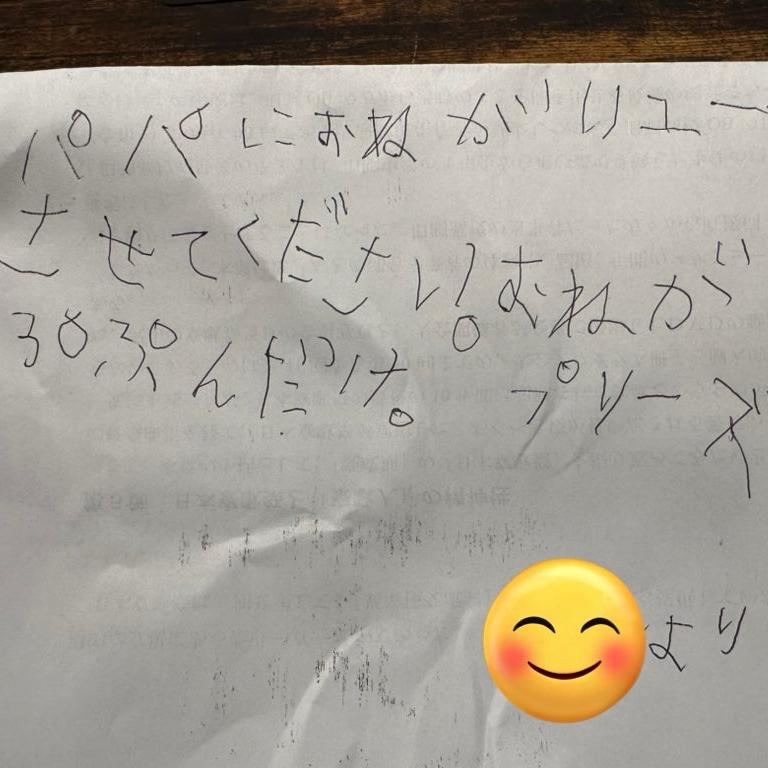 パパにおねがいユー
させてください。おねが
30ぷんだけ。プリーズ
より